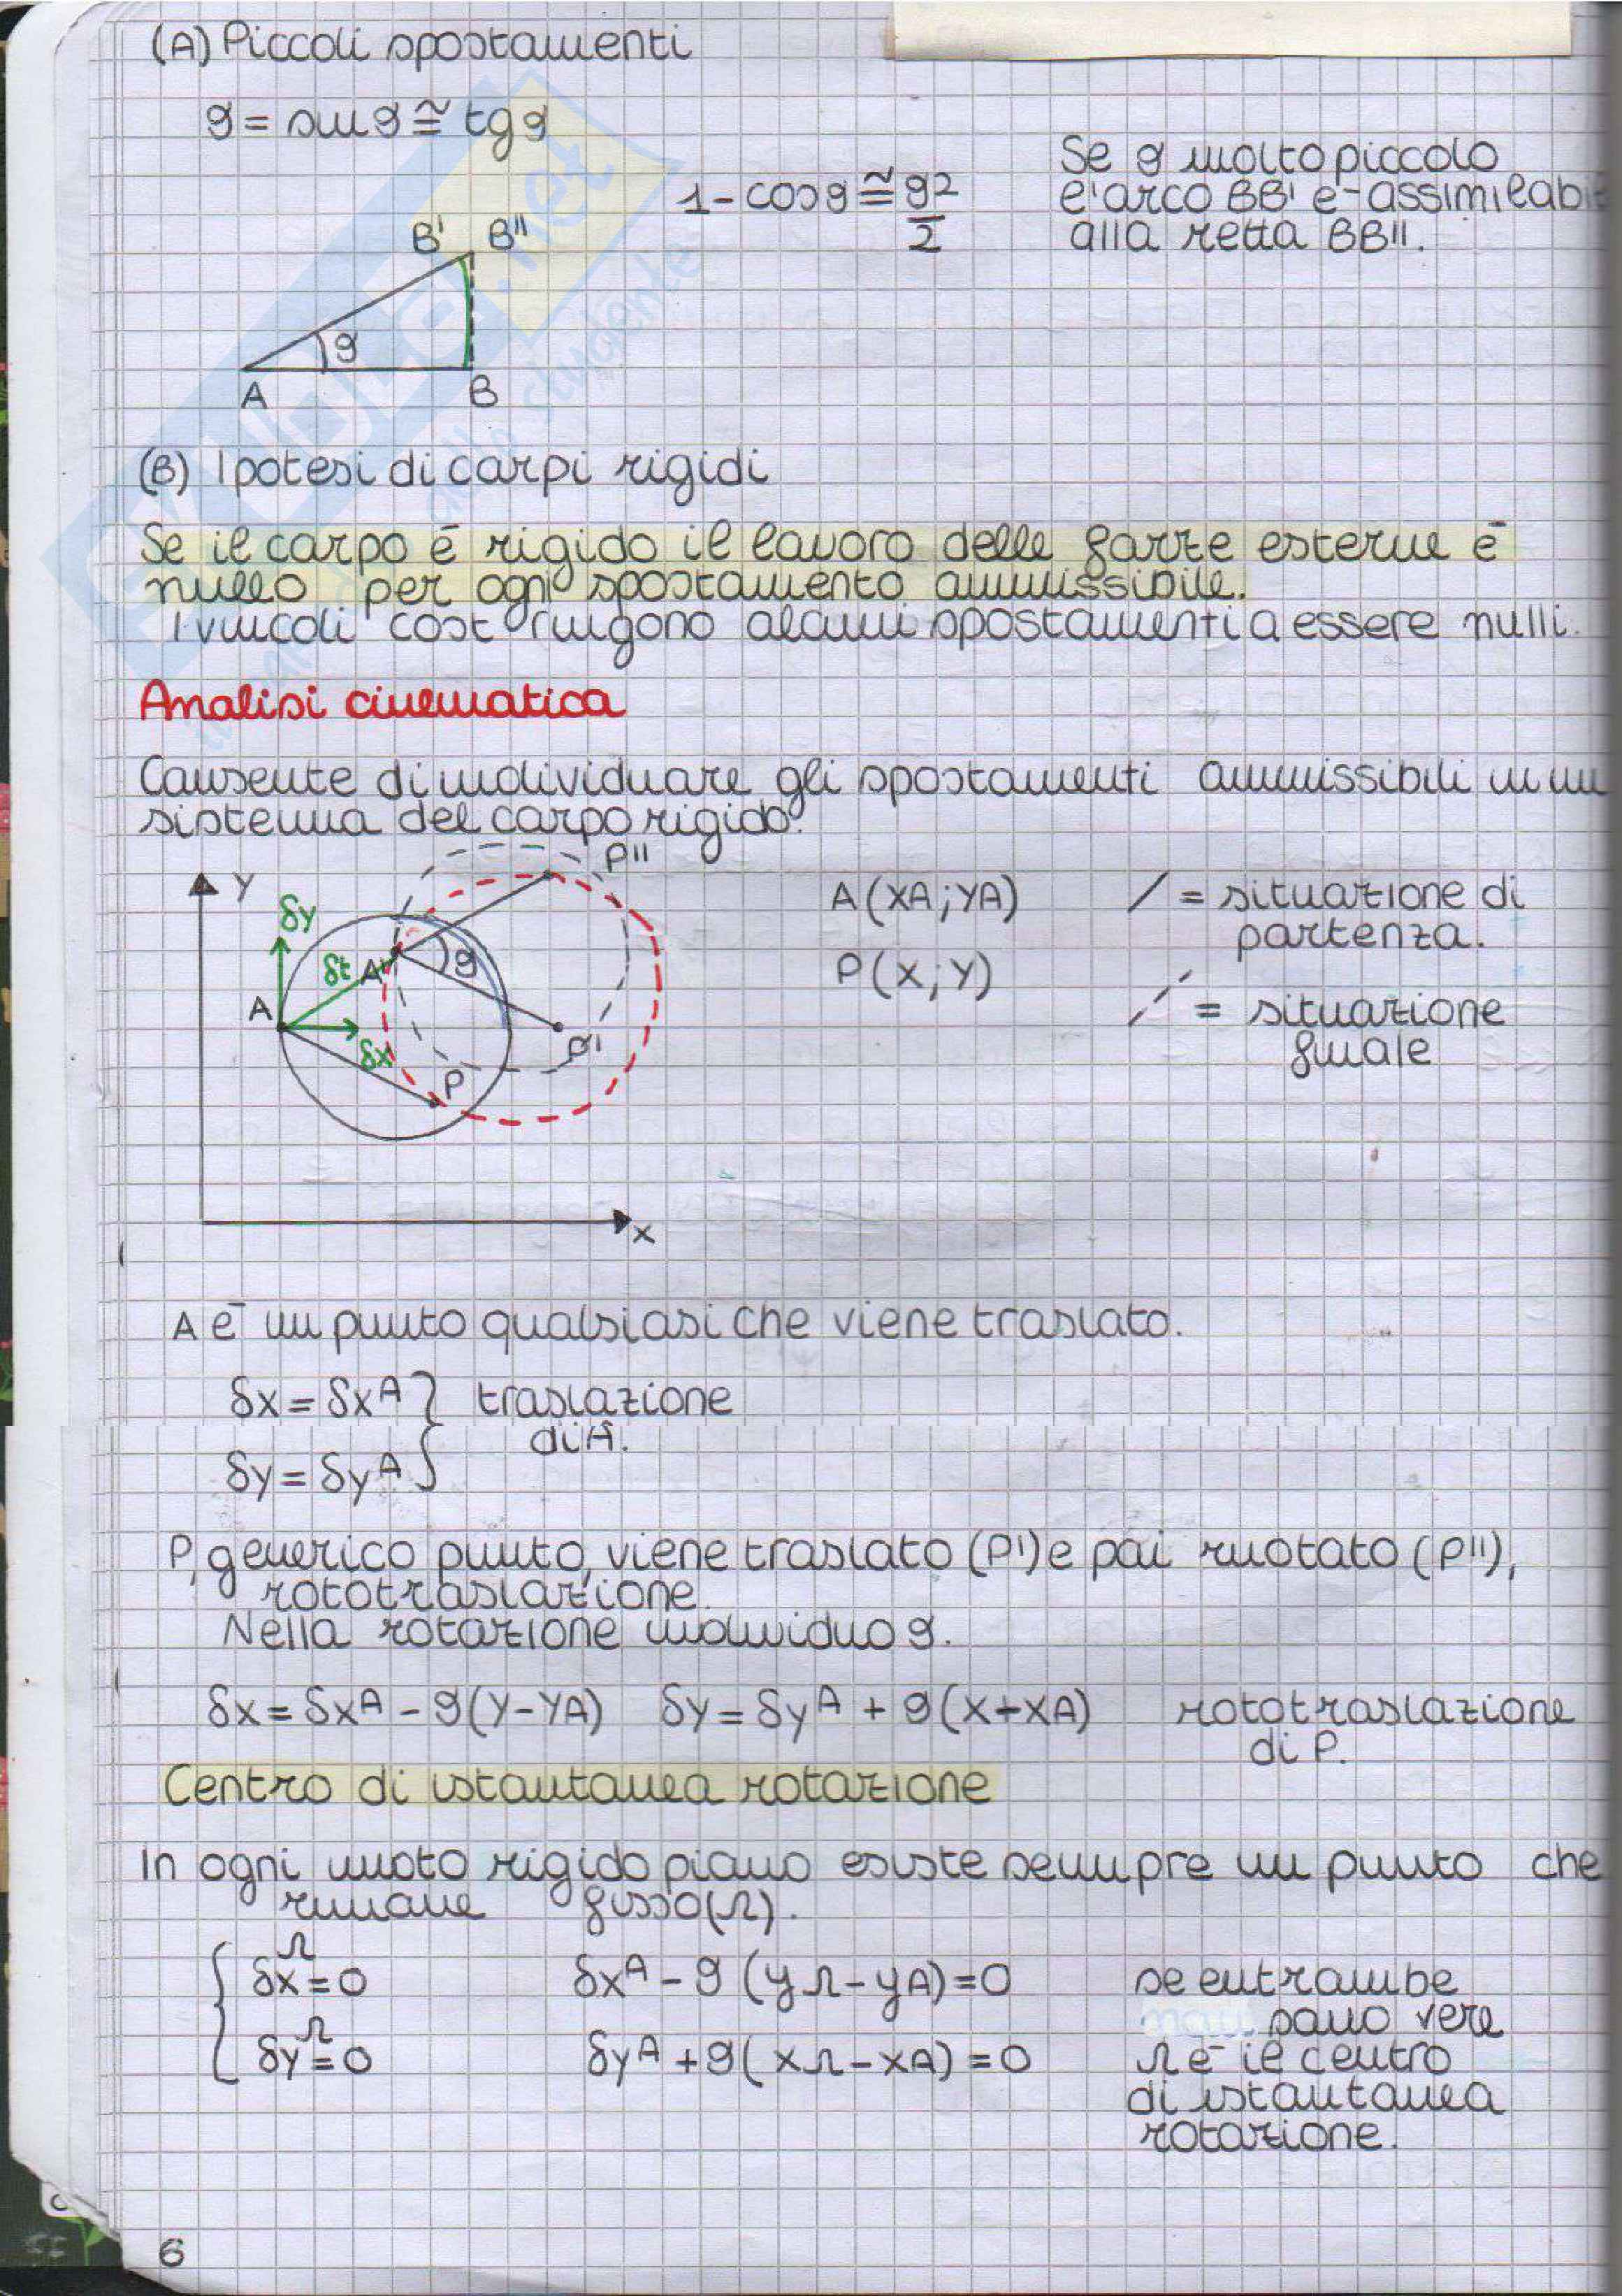 (A) Piccoli spostamenti
φ = sin φ ≅ tg φ
1 - cos φ ≅ φ2
2
Se φ molto piccolo
l'arco BB' è assimilab
alla retta BB''.
B' B''
φ
A B
(B) Ipotesi di corpi rigidi
Se il corpo è rigido il lavoro delle forze esterne è
nullo per ogni spostamento ammissibile.
I vincoli costringono alcuni spostamenti a essere nulli.
Analisi cinematica
Consente di individuare gli spostamenti ammissibili in un
sistema del corpo rigido.
P''
Y
δy
δt
A'
φ
A
P'
δx
P
x
A(XA; YA)
P(X; Y)
/ = situazione di
partenza.
/ = situazione
finale
A è un punto qualsiasi che viene traslato.
δx = δxA } traslazione
di A.
δy = δyA
P, generico punto, viene traslato (P') e poi ruotato (P''),
rototraslazione.
Nella rotazione individuo φ.
δx = δxA - φ(Y-YA) δy = δyA + φ(X+XA) rototraslazione
di P.
Centro di istantanea rotazione
In ogni moto rigido piano esiste sempre un punto che
rimane fisso (Ω).
δxΩ = 0 δxA - φ(yΩ - yA) = 0 se entrambe
sono vere
δyΩ = 0 δyA + φ(xΩ - xA) = 0 Ω è il centro
di istantanea
rotazione.
6